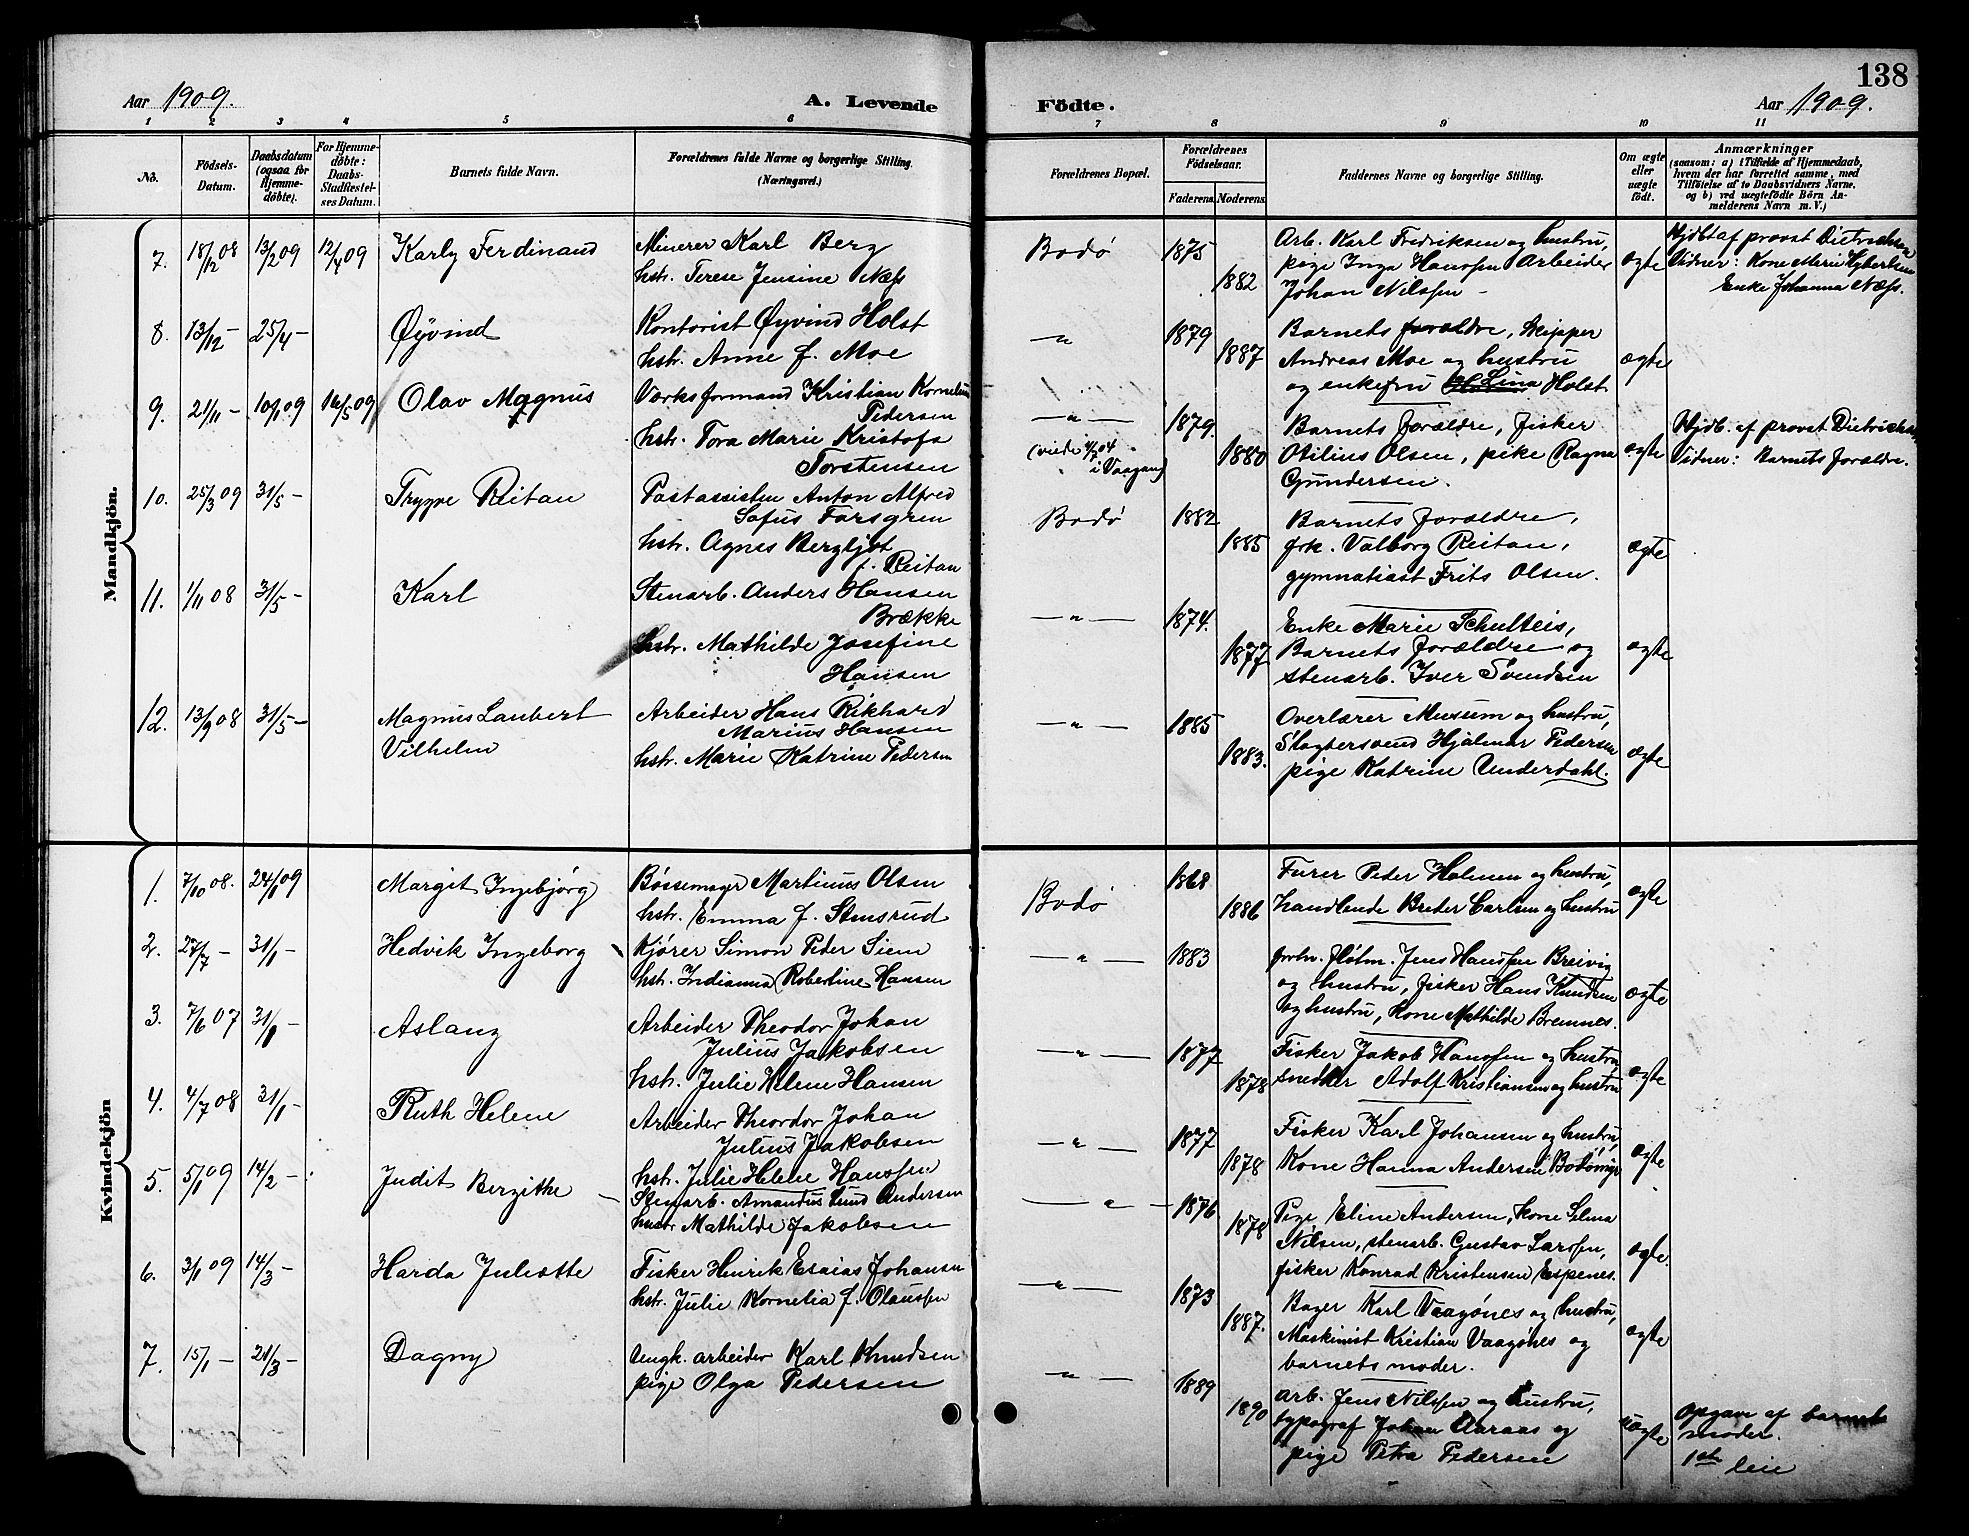 138
Aar 1909.
A. Levende Födte.
Aar 1909.
1 2 3 4 5 6 7 8 9 10 11
No.
Födsels-Datum.
Daabsdatum (ogsaa for Hjemmedöbte).
For Hjemmedöbte: Daabs-Stadfestelses Datum.
Barnets fulde Navn.
Forældrenes fulde Navne og borgerlige Stilling. (Næringsvei.)
Forældrenes Bopæl.
Forældrenes Födselsaar.
Faderens. Moderens.
Faddernes Navne og borgerlige Stilling.
Om ægte eller uægte födt.
Anmærkninger
(saasom: a) i Tilfælde af Hjemmedaab,
hvem der har forrettet samme, med
Tilföielse af to Daabsvidners Navne,
og b) ved uægtefödte Börn An-
melderens Navn m. V.)
Mandkjön.
7. 18/12 08 13/2 09 12/4 09 Karly Ferdinand
Minerer Karl Berg
hstr. Terese Jensine Næss
Bodø 1875 1882
Arb. Karl Fredriksen og hustru,
pige Inga Hanssen Arbeider
Johan Nilssen –
ægte
Hjdbt af provst Dietrichson
Vidner: Kone Merie
Enke Johanna Næss.
8. 13/12 – 25/4 – Øyvind
Kontorist Øyvind Holst
hstr. Anne f. Moe
– " – 1879 1887
Barnets forældre, Skipper
Andreas Moe og hustru
og enkefru Lina Holst.
ægte
9. 21/11 – 10/1 09 16/5 09 Olav Magnus
Værksformand Kristian Kornelius
Pedersen
hstr. Tora Marie Kristofa
Torstensen
– " –
(viede 4/7 04
i Vaagan)
1879. 1880
Barnets forældre, fisker
Otilius Olsen, pike Ragna
Gundersen.
ægte
Hjdb. af provst Dietrichson
Vidner: Barnets forældre.
10. 25/3 09 31/5 – Tryggve Reitan
Postassisten Anton Alfred
Sofus Forsgren
hstr. Agnes Bergljot
f. Reitan
Bodø 1882 1885
Barnets forældre,
frk. Valborg Reitan,
gymnatiast Frits Olsen.
ægte
11. 1/11 08 31/5 – Karl
Stenarb. Anders Hansen
Brække
hstr. Mathilde Josefine
Hansen
– " – 1874. 1877
Enke Marie Schulteis,
Barnets forældre og
stenarb. Iver Svendsen
ægte
12. 13/9 08 31/5 – Magnus Laubert
Vilhelm
Arbeider Hans Rikhard
Marius Hansen
hstr. Marie Katrine Pedersen
– " – 1885 1883.
Overlærer Musum og hustru,
Slagtersvend Hjalmar Pedersen
pige Katrine Underdahl.
ægte
Kvindekjön
1. 7/10 08. 24/1 09 Margit Ingebjørg
Bøssemager Martinus Olsen
hstr. Emma f. Stensrud
Bodø 1868 1886
Furer Peder Holmen og hustru,
handlende Breder Carlsen og hustru
ægte
2. 27/7 – 31/1 – Hedvik Ingeborg
Kjører Simon Peder Siem
hstr. Indianna Robertine Hansen
– " – 1883
Jens Hanssen Breivig
og hustru, fisker Hans Knudsen
og hustru, Kone Mathilde Bremnes.
ægte
3. 7/6 07 31/1 – Aslaug
Arbeider Theodor Johan
Julius Jakobsen
hstr. Julie Helene Hansen
– " – 1877 1878
Fisker Jakob Hanssen og hustru,
snedker Adolf Kristiansen og hustru
ægte
4. 4/7 08 31/1 – Ruth Helene
Arbeider Theordor Johan
Julius Jakobsen
hstr. Julie Helene Hanssen
– " – 1877 1878
Fisker Karl Johansen og hustru,
Kone Hanna Andersen
ægte
5. 5/1 09 14/2 – Judit Bergithe
Stenarb. Amandus Lund Andersen
hustr Mathilde Jakobsen
– " – 1876 1878
Pige Eline Andersen, kone Selma
Nilsen, stenarb. Gustav Larssen,
fisker Konrad Kristensen Espenes.
ægte.
6. 3/1 09 14/3 – Harda Juliette
Fisker Henrik Esaias Johansen
hstr. Julie Kornelia f. Olaussen
– " – 1873 1887.
Bager Karl Vaagønes og hustru,
Maskinist Kristian Vaagønes og
barnets moder.
ægte
7. 15/1 – 21/3 – Dagny
Ungk. arbeider Karl Knudsen
pige Olga Pedersen
– " – 1889 1890
Arb. Jens Nilssen og hustru,
typograf Johan Aaraas og
pige Petra Pedersen
uægte
Opgav af barnets
moder.
1ste leie